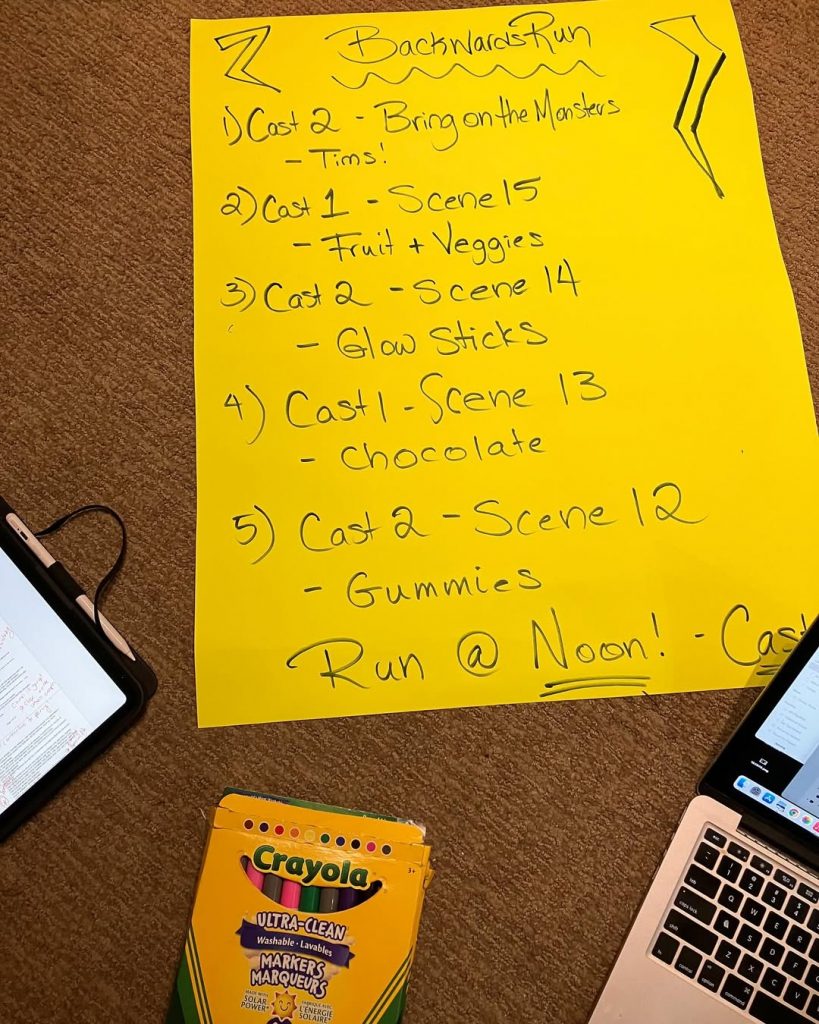 Backwards Run
1) Cast 2 - Bring on the Monsters
- Tims!
2) Cast 1 - Scene 15
- Fruit + Veggies
3) Cast 2 - Scene 14
- Glow Sticks
4) Cast 1 - Scene 13
- Chocolate
5) Cast 2 - Scene 12
- Gummies
Run @ Noon! - Cast
Crayola
3+
ULTRA-CLEAN
Washable • Lavables
MARKERS
MARQUEURS
MADE WITH
SOLAR
POWER*
FABRIQUÉ AVEC
L'ÉNERGIE
SOLAIRE*